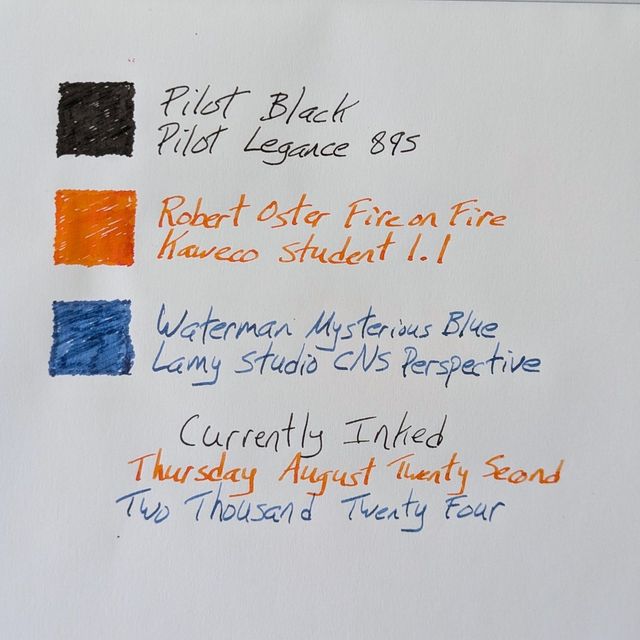 Pilot Black
Pilot Legance 89s
Robert Oster Fire on Fire
Kaweco Student 1.1
Waterman Mysterious Blue
Lamy Studio CNS Perspective
Currently Inked
Thursday August Twenty Second
Two Thousand Twenty Four